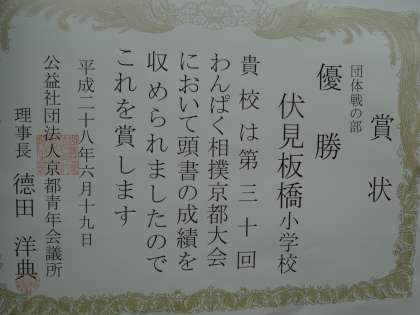 賞状
団体戦の部
優勝
伏見板橋小学校
貴校は第三十回
わんぱく相撲京都大会
において頭書の成績を
収められましたので
これを賞します
平成二十八年六月十九日
公益社団法人京都青年会議所
理事長 德田洋典